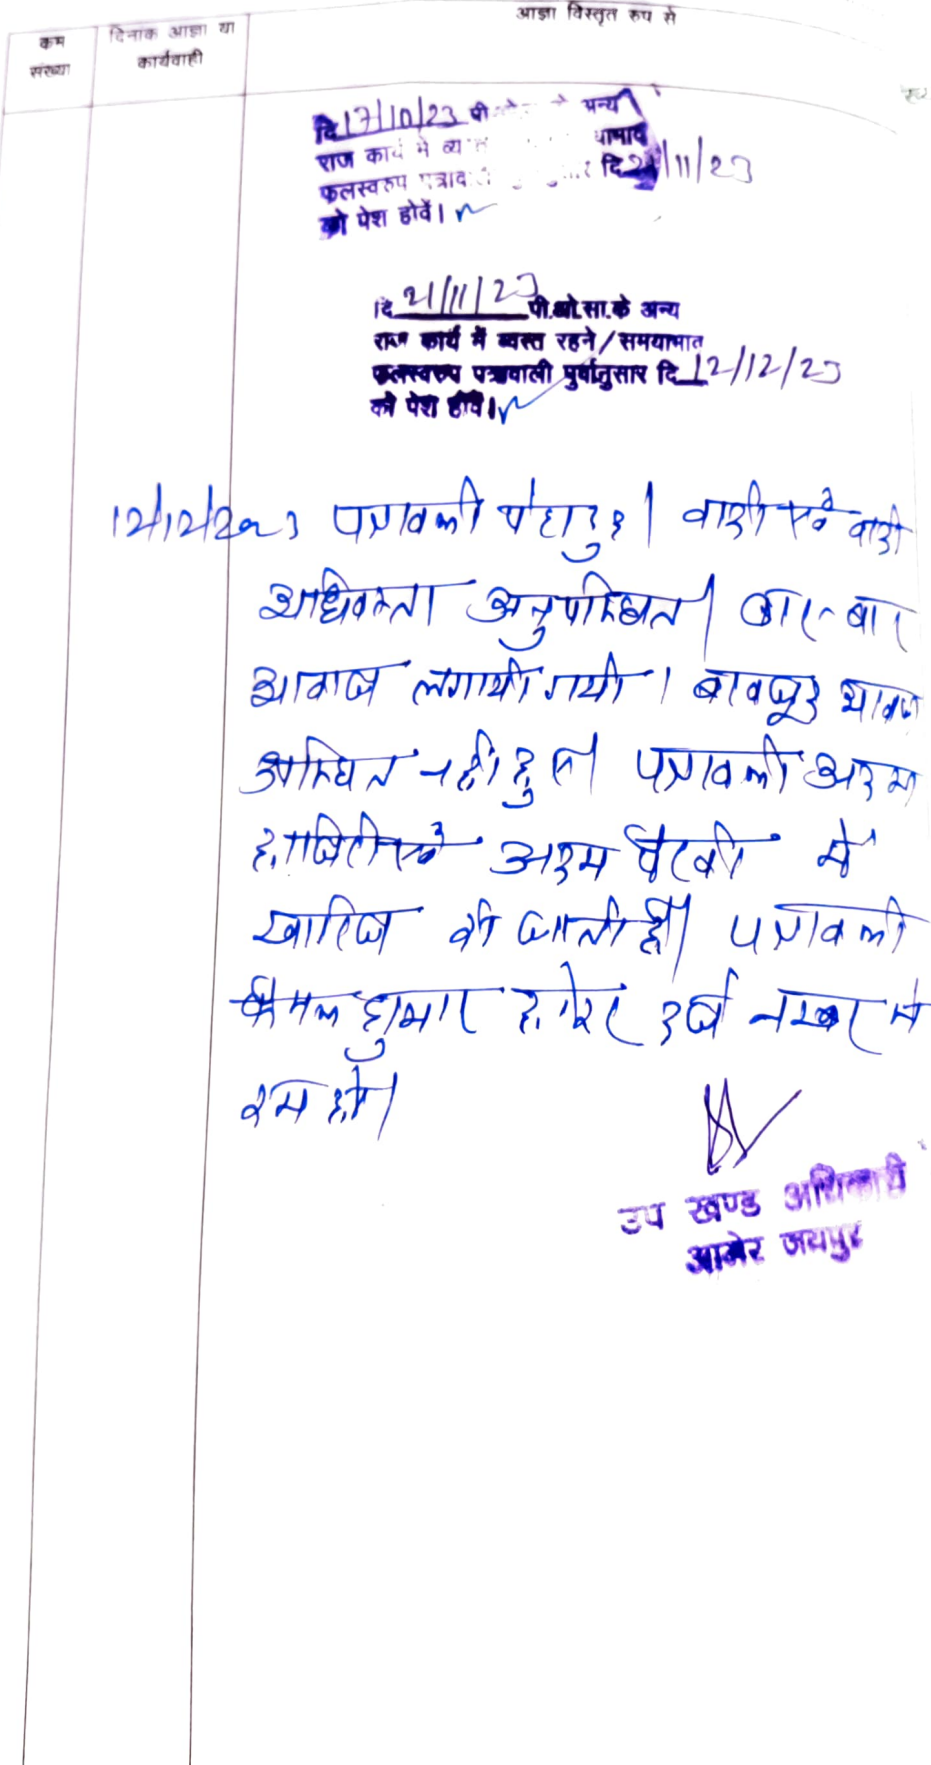 क्रम
संख्या
दिनांक आज्ञा या
कार्यवाही
आज्ञा विस्तृत रुप से
दि 17/10/23 पी अन्य
राज कार्य मे
फलस्वरुप दि 21/11/23
को पेश होवें।
दि 21/11/23 पी.ओ.सा.के अन्य
राज कार्य में व्यस्त रहने/समयाभाव
फलस्वरुप पत्रावली पुर्वानुसार दि 12/12/23
को पेश होवें।
12/12/2023 पत्रावली पेश हुई। वादी एवं वादी
अधिवक्ता अनुपस्थित। बार-बार
आवाज लगायी गयी। बावजूद आवाज
उपस्थित नहीं हुए। पत्रावली अदम
हाजिरी एवं अदम पैरवी में
खारिज की जाती है। पत्रावली
फैसल शुमार होकर दर्ज नम्बर से
कम हो।
उप खण्ड अधिकारी
आमेर जयपुर